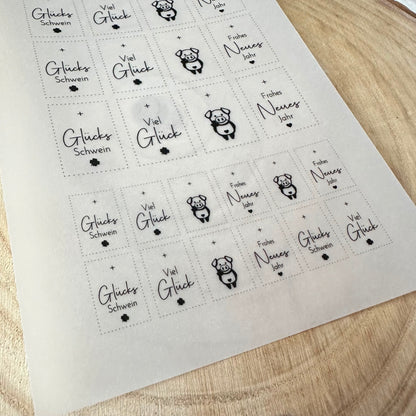 Glücks
Schwein
Glück
Jahr
Glücks
Schwein
Viel
Glück
Frohes
Neues
Jahr
Glücks
Schwein
Viel
Glück
Frohes
Neues
Jahr
Glücks
Schwein
Viel
Glück
Frohes
Neues
Jahr
Frohes
Neues
Jahr
Glücks
Schwein
Viel
Glück
Frohes
Neues
Jahr
Glücks
Schwein
Viel
Glück